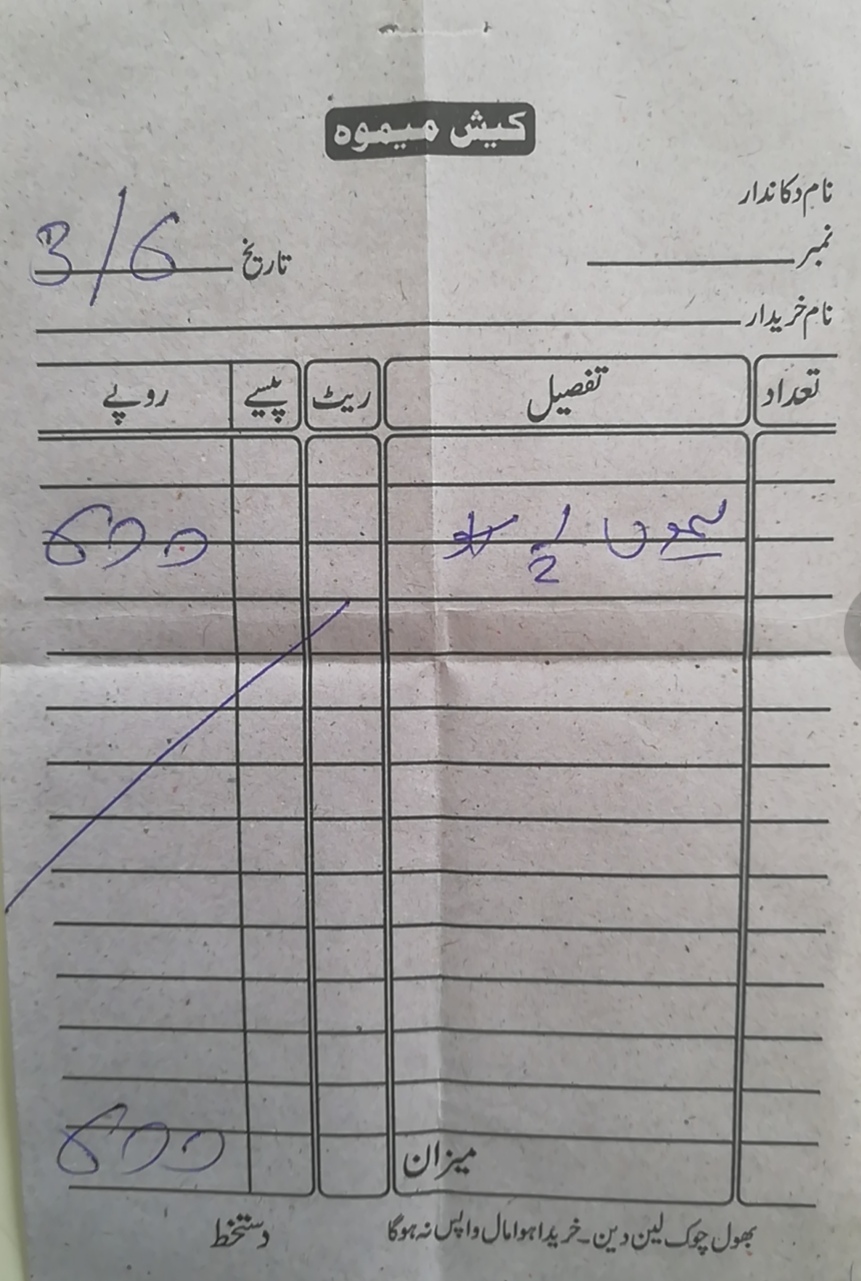 کیش میموہ
نام دکاندار
نمبر
تاریخ 3/6
نام خریدار
تعداد تفصیل ریٹ پیسے روپے
لیموں 1/2 600
میزان 600
بھول چوک لین دین۔ خریدا ہوا مال واپس نہ ہوگا
دستخط